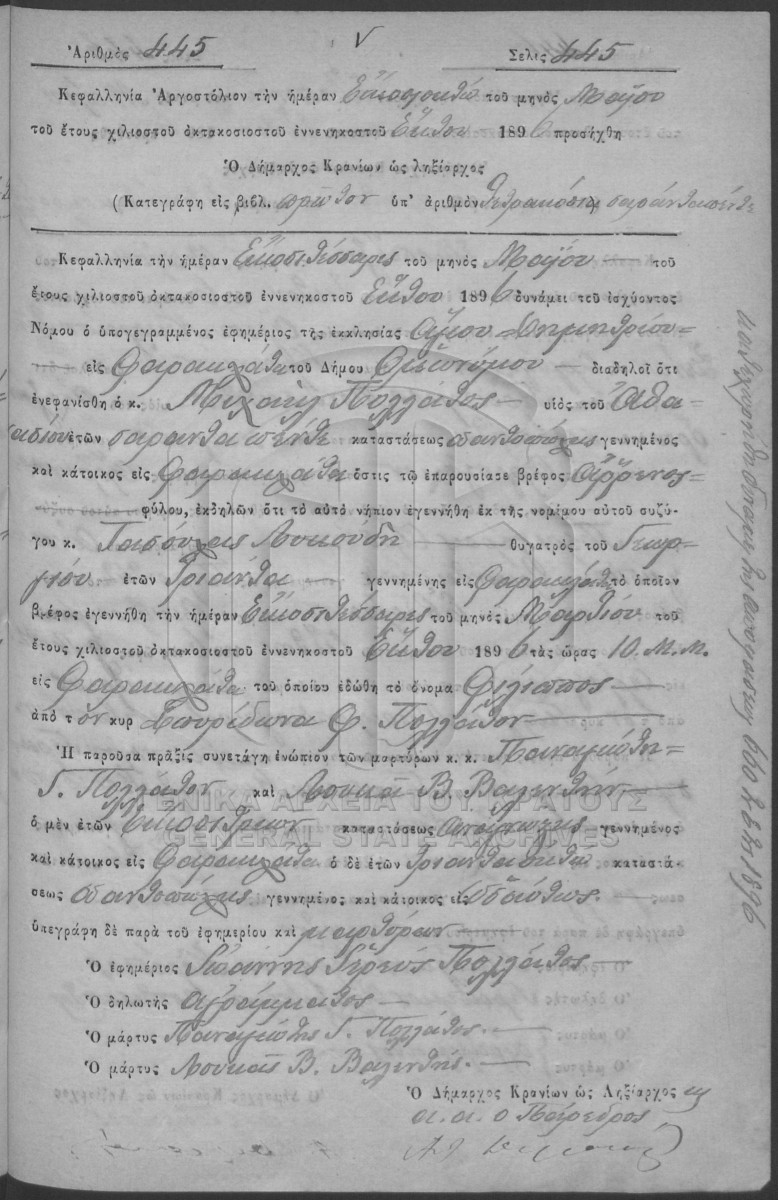 Ἀριθμὸς 445 Σελὶς 445
Κεφαλληνία Ἀργοστόλιον τὴν ἡμέραν Εἰκοσιοκτὼ τοῦ μηνὸς Μαΐου
τοῦ ἔτους χιλιοστοῦ ὀκτακοσιοστοῦ ἐννενηκοστοῦ Ἕκτου 1896 προσήχθη
Ὁ Δήμαρχος Κρανίων ὡς ληξίαρχος
(Κατεγράφη εἰς βιβλ. πρῶτον ὑπ' ἀριθμὸν τετρακόσια σαράντα πέντε
Κεφαλληνία τὴν ἡμέραν Εἴκοσι τέσσαρες τοῦ μηνὸς Μαΐου τοῦ
ἔτους χιλιοστοῦ ὀκτακοσιοστοῦ ἐννενηκοστοῦ Ἕκτου 1896 δυνάμει τοῦ ἰσχύοντος
Νόμου ὁ ὑπογεγραμμένος ἐφημέριος τῆς ἐκκλησίας Ἁγίου Δημητρίου
εἰς Φαρακλάτα τοῦ Δήμου διαδηλοῖ ὅτι
ἐνεφανίσθη ὁ κ. Μιχαὴλ Πολλάτος υἱὸς τοῦ
ἐτῶν σαράντα πέντε καταστάσεως γεννημένος
καὶ κάτοικος εἰς Φαρακλάτα ὅστις τῷ ἐπαρουσίασε βρέφος ἄρρενος
φύλου, ἐκδηλῶν ὅτι τὸ αὐτὸ νήπιον ἐγεννήθη ἐκ τῆς νομίμου αὐτοῦ συζύ-
γου κ. Λυκούδη θυγατρὸς τοῦ Γεωρ-
γίου ἐτῶν Τριάντα γεννημένης εἰς Φαρακλάτα τὸ ὁποῖον
βρέφος ἐγεννήθη τὴν ἡμέραν Εἴκοσι τέσσαρες τοῦ μηνὸς Μαρτίου τοῦ
ἔτους χιλιοστοῦ ὀκτακοσιοστοῦ ἐννενηκοστοῦ Ἕκτου 1896 τὰς ὥρας 10. Μ.Μ.
εἰς Φαρακλάτα τοῦ ὁποίου ἐδώθη τὸ ὄνομα Φίλιππος
ἀπὸ τὸν κυρ Σπυρίδωνα Φ. Πολλάτον
Ἡ παροῦσα πρᾶξις συνετάγη ἐνώπιον τῶν μαρτύρων κ. κ. Παναγιώτη
Γ. Πολλάτου καὶ Λουκᾶ Β. Βαλεντῆ
ΓΕΝΙΚΑ ΑΡΧΕΙΑ ΤΟΥ ΚΡΑΤΟΥΣ
ὁ μὲν ἐτῶν Εἴκοσι τριῶν καταστάσεως γεννημένος
GENERAL STATE ARCHIVES
καὶ κάτοικος εἰς Φαρακλάτα ὁ δὲ ἐτῶν καταστά-
σεως γεννημένος καὶ κάτοικος εἰς ὡσαύτως.
ὑπεγράφη δὲ παρὰ τοῦ ἐφημερίου καὶ μαρτύρων
Ὁ ἐφημέριος Ἰωάννης Ἱερεὺς Πολλάτος
Ὁ δηλωτὴς ἀγράμματος
Ὁ μάρτυς Παναγιώτης Γ. Πολλάτος.
Ὁ μάρτυς Λουκᾶς Β. Βαλεντῆς.
Ὁ Δήμαρχος Κρανίων ὡς Ληξίαρχος
α.α. ὁ Πάρεδρος